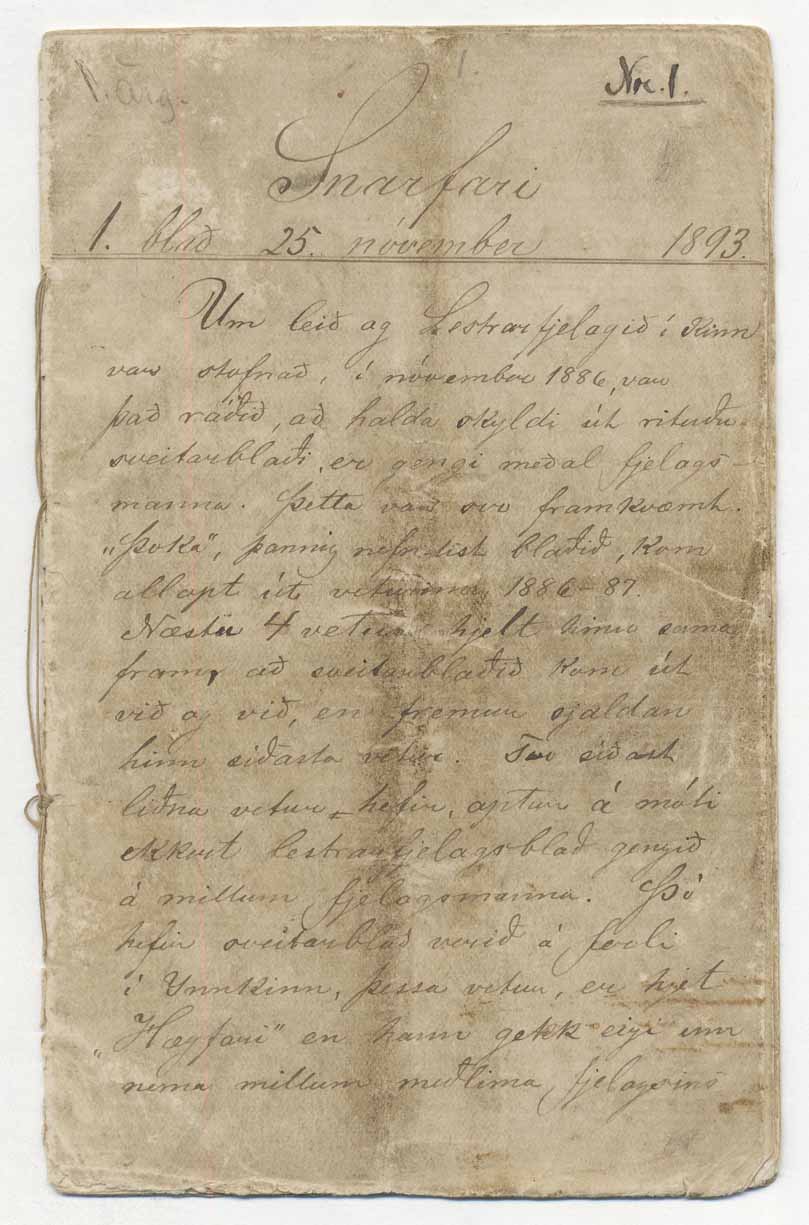 1. árg.
Nr. 1.
Snarfari
1. blað 25. nóvember 1893.
Um leið og Lestrarfjelagið í Kinn
var stofnað, í nóvember 1886, var
það ráðið, að halda skyldi út rituðu
sveitarblaði, er gengi meðal fjelags-
manna. Þetta var svo framkvæmt.
„Þoka“, þannig nefndist blaðið, kom
allopt út veturinn 1886-87.
Næstu 4 vetur hjelt hinu sama
fram, að sveitarblaðið kom út
við og við, en fremur sjaldan
hinn síðasta vetur. Tvo síðast
liðna vetur hefir, aptur á móti
ekkert lestrarfjelagsblað gengið
á millum fjelagsmanna. Þó
hefir sveitarblað verið á ferli
í Ynnkinn, þessa vetur, er hjet
„Hægfari“ en hann gekk eigi um
nema millum meðlima fjelagsins